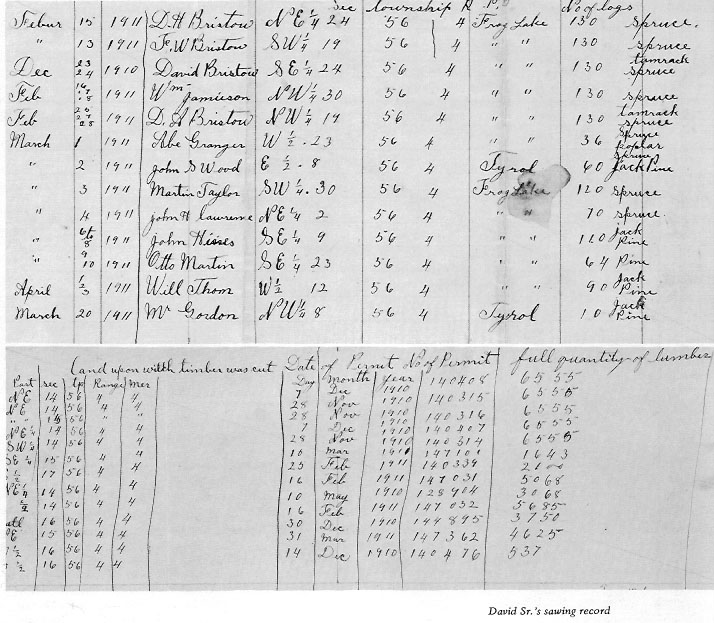 Sec township R P.O No of logs
Febur 15 1911 D. H Bristow N E ¼ 24 56 4 Frog Lake 130 spruce.
" 13 1911 F. W Bristow S W ¼ 19 56 4 " " 130 spruce
Dec 23 24 1910 David Bristow S E ¼ 24 56 4 " " 130 tamrack spruce
Feb 1911 Wm Jamieson N W ¼ 30 56 4 " " 130 spruce
Feb 1911 D. A Bristow N W ¼ 19 56 4 " " 130 tamrack spruce
March 1 1911 Abe Granger W ½ . 23 56 4 " " 36 spruce poplar
" 2 1911 John S Wood E ½ . 8 56 4 Tyrol 60 spruce Jack Pine
" 3 1911 Martin Taylor S W ¼ . 30 56 4 Frog Lake 120 spruce
" 4 1911 John H lawrence N E ¼ 2 56 4 " 70 spruce.
" 1911 John Hisses S E ¼ 9 56 4 " " 110 jack Pine
" 9 10 1911 Otto Martin S E ¼ 23 56 4 " " 64 Pine
April 1911 Will Thom W ½ 12 56 4 " " 90 Jack Pine
March 20 1911 Mr Gordon N W ¼ 8 56 4 Tyrol 10 Jack Pine
Land upon witth timber was cut Date of Permit No of Permit full quantity of lumber
Part sec tp Range Mer Day Month year
N E 14 56 4 4 7 Dec 1910 140408 6555
N E 14 56 4 4 28 Nov 1910 140315 6555
" " 14 56 " " 28 Nov 1910 140316 6555
N E ¼ 14 56 4 4 9 Dec 1910 140407 6555
S W ¼ 14 56 4 4 28 Nov 1910 140314 6555
S E ¼ 15 56 4 4 10 Mar 147101 1643
½ 17 56 4 4 25 Feb 1911 140339
N E ¼ 14 56 4 4 16 Feb 1911 147031 5068
14 56 4 4 10 May 1910 128904 3068
16 56 4 4 16 Feb 1911 147032 5685
E 15 56 4 4 30 Dec 1910 144895 3750
½ 16 56 4 4 31 Mar 1911 147362 4625
½ 16 56 4 4 14 Dec 1910 140476 537
David Sr.'s sawing record